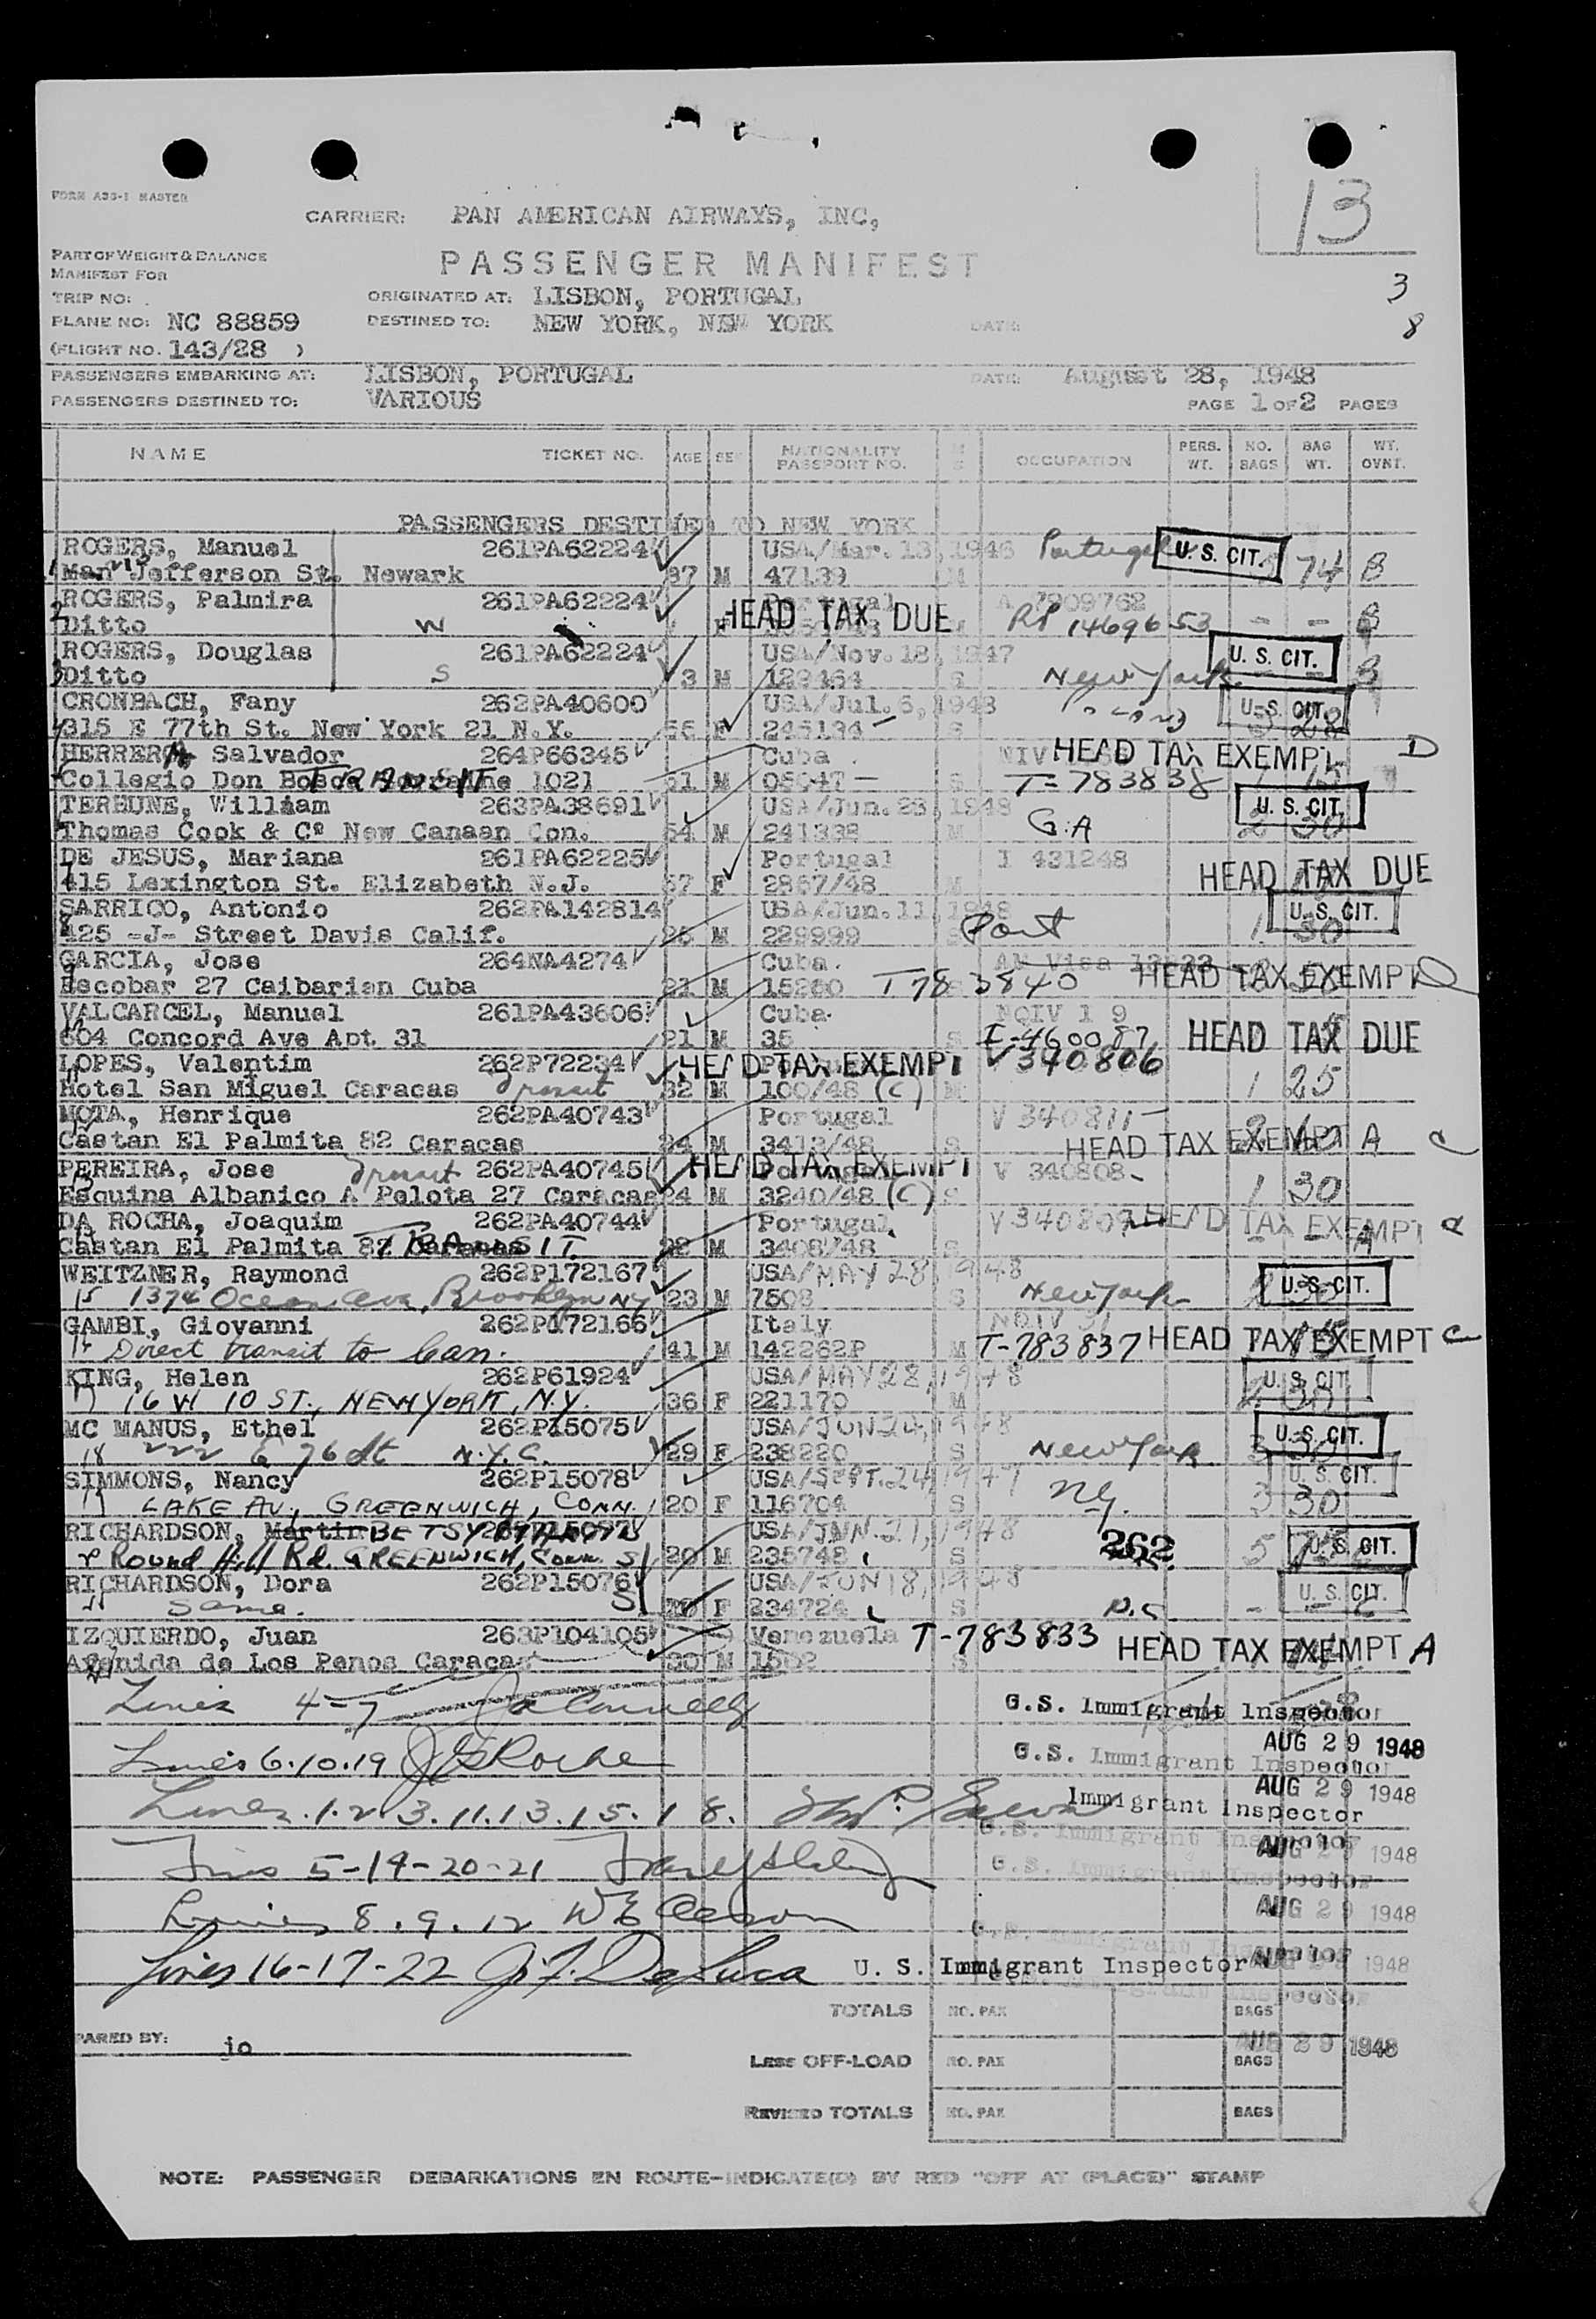 FORM A33-1 MASTER
CARRIER: PAN AMERICAN AIRWAYS, INC,
13
PART OF WEIGHT & BALANCE
MANIFEST FOR
PASSENGER MANIFEST
TRIP NO:
ORIGINATED AT: LISBON, PORTUGAL
3
PLANE NO: NC 88859
DESTINED TO: NEW YORK, NEW YORK
DATE:
8
(FLIGHT NO. 143/28 )
PASSENGERS EMBARKING AT: LISBON, PORTUGAL DATE: August 28, 1948
PASSENGERS DESTINED TO: VARIOUS PAGE 1 OF 2 PAGES
NAME TICKET NO. AGE SEX NATIONALITY PASSPORT NO. M S OCCUPATION PERS. WT. NO. BAGS BAG WT. WT. OVNT.
PASSENGERS DESTINED TO NEW YORK
ROGERS, Manuel 261PA62224 USA/Mar. 13, 1946 Portugal U. S. CIT.
Jefferson St. Newark 37 M 47139 M 74 B
ROGERS, Palmira 261PA62224 Portugal HEAD TAX DUE A 7909762
Ditto W F M RP 1469653 - - B
ROGERS, Douglas 261PA62224 USA/Nov. 18, 1947 U. S. CIT.
Ditto S 3 M 129464 S New York B
CRONBACH, Fany 262PA40600 USA/Jul. 6, 1948 Poland U. S. CIT.
315 E 77th St. New York 21 N.Y. 56 F 245134 S 3 28
HERRERA, Salvador 264P66345 Cuba NIV HEAD TAX EXEMPT D
Collegio Don Bosco TRANSIT 1021 51 M 05047 S T-783838 1 15
TERHUNE, William 263PA38691 USA/Jun. 23, 1948 U. S. CIT.
Thomas Cook & Cº New Canaan Con. 54 M 241338 M G.A 2 30
DE JESUS, Mariana 261PA62225 Portugal I 431248 HEAD TAX DUE
415 Lexington St. Elizabeth N.J. 57 F 2867/48 M
SARRICO, Antonio 262PA142814 USA/Jun. 11, 1948 U. S. CIT.
425 -J- Street Davis Calif. 25 M 229999 S Port 1 30
GARCIA, Jose 264NA4274 Cuba. AM Visa
Escobar 27 Caibarien Cuba 21 M 15280 T 783840 HEAD TAX EXEMPT D
VALCARCEL, Manuel 261PA43606 Cuba. NQIV 1 9
604 Concord Ave Apt. 31 21 M 35 S I-460087 HEAD TAX DUE
LOPES, Valentim 262P72234 HEAD TAX EXEMPT V 340806
Hotel San Miguel Caracas Transit 32 M 100/48 (C) M 1 25
MOTA, Henrique 262PA40743 Portugal V 340811
Castan El Palmita 82 Caracas 24 M 3413/48 S HEAD TAX EXEMPT A C
PEREIRA, Jose Transit 262PA40745 HEAD TAX EXEMPT V 340808
Esquina Albanico A Pelota 27 Caracas 24 M 3240/48 (C) S 1 30
DA ROCHA, Joaquim 262PA40744 Portugal V 340809 HEAD TAX EXEMPT
Castan El Palmita 82 Caracas TRANSIT 22 M 3408/48 S A
WEITZNER, Raymond 262P172167 USA/MAY 28, 1948 U. S. CIT.
15 1374 Ocean Ave, Brooklyn NY 23 M 7508 S New York
GAMBI, Giovanni 262P172166 Italy NQIV 31
Direct transit to Can. 41 M 142262P M T-783837 HEAD TAX EXEMPT C
KING, Helen 262P61924 USA/MAY 28, 1948 U. S. CIT.
17 16 W 10 ST., NEW YORK, N.Y. 36 F 221170 M
MC MANUS, Ethel 262P15075 USA/JUN 24, 1948 U. S. CIT.
18 222 E 76 St N.Y.C. 29 F 238220 S New York
SIMMONS, Nancy 262P15078 USA/SEPT. 24, 1947 U. S. CIT.
19 LAKE AV., GREENWICH, CONN. 20 F 116704 S NY. 3 30
RICHARDSON, Martin BETSY USA/JUN. 21, 1948 262 U. S. CIT.
Round Hill Rd. GREENWICH, CONN. S 20 M 235748 S 5
RICHARDSON, Dora 262P15076 USA/JUN 18, 1948 U. S. CIT.
Same. S F 234724 S D.C
IZQUIERDO, Juan 263P104105 Venezuela T-783833 HEAD TAX EXEMPT A
Avenida de Los Penos Caracas 30 M S
Lines 4-7 G.S. Immigrant Inspector
AUG 29 1948
Lines 6.10.19 G.S. Immigrant Inspector
AUG 29 1948
Lines 1.2.3.11.13.15.18. Immigrant Inspector
AUG 29 1948
Lines 5-14-20-21
AUG 29 1948
Lines 8.9.12
Lines 16-17-22 J.F. DeLuca U. S. Immigrant Inspector AUG 29 1948
TOTALS NO. PAX BAGS
PARED BY: jo
AUG 29 1948
LESS OFF-LOAD NO. PAX BAGS
REVISED TOTALS NO. PAX BAGS
NOTE: PASSENGER DEBARKATIONS EN ROUTE-INDICATE(D) BY RED "OFF AT (PLACE)" STAMP